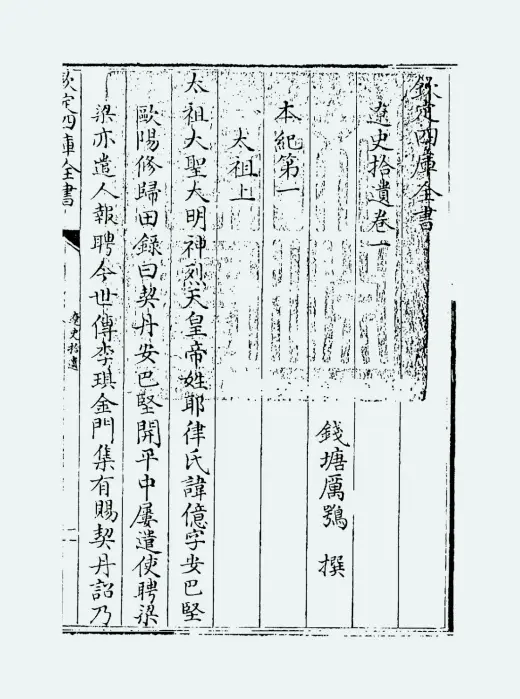 欽定四庫全書
遼史拾遺卷一
錢塘厲鶚 撰
本紀第一
太祖上
太祖大聖大明神烈天皇帝姓耶律氏諱億字安巴堅
歐陽修歸田錄曰契丹安巴堅開平中屢遣使聘梁
梁亦遣人報聘今世傳李琪金門集有賜契丹詔乃
欽定四庫全書
遼史拾遺
一